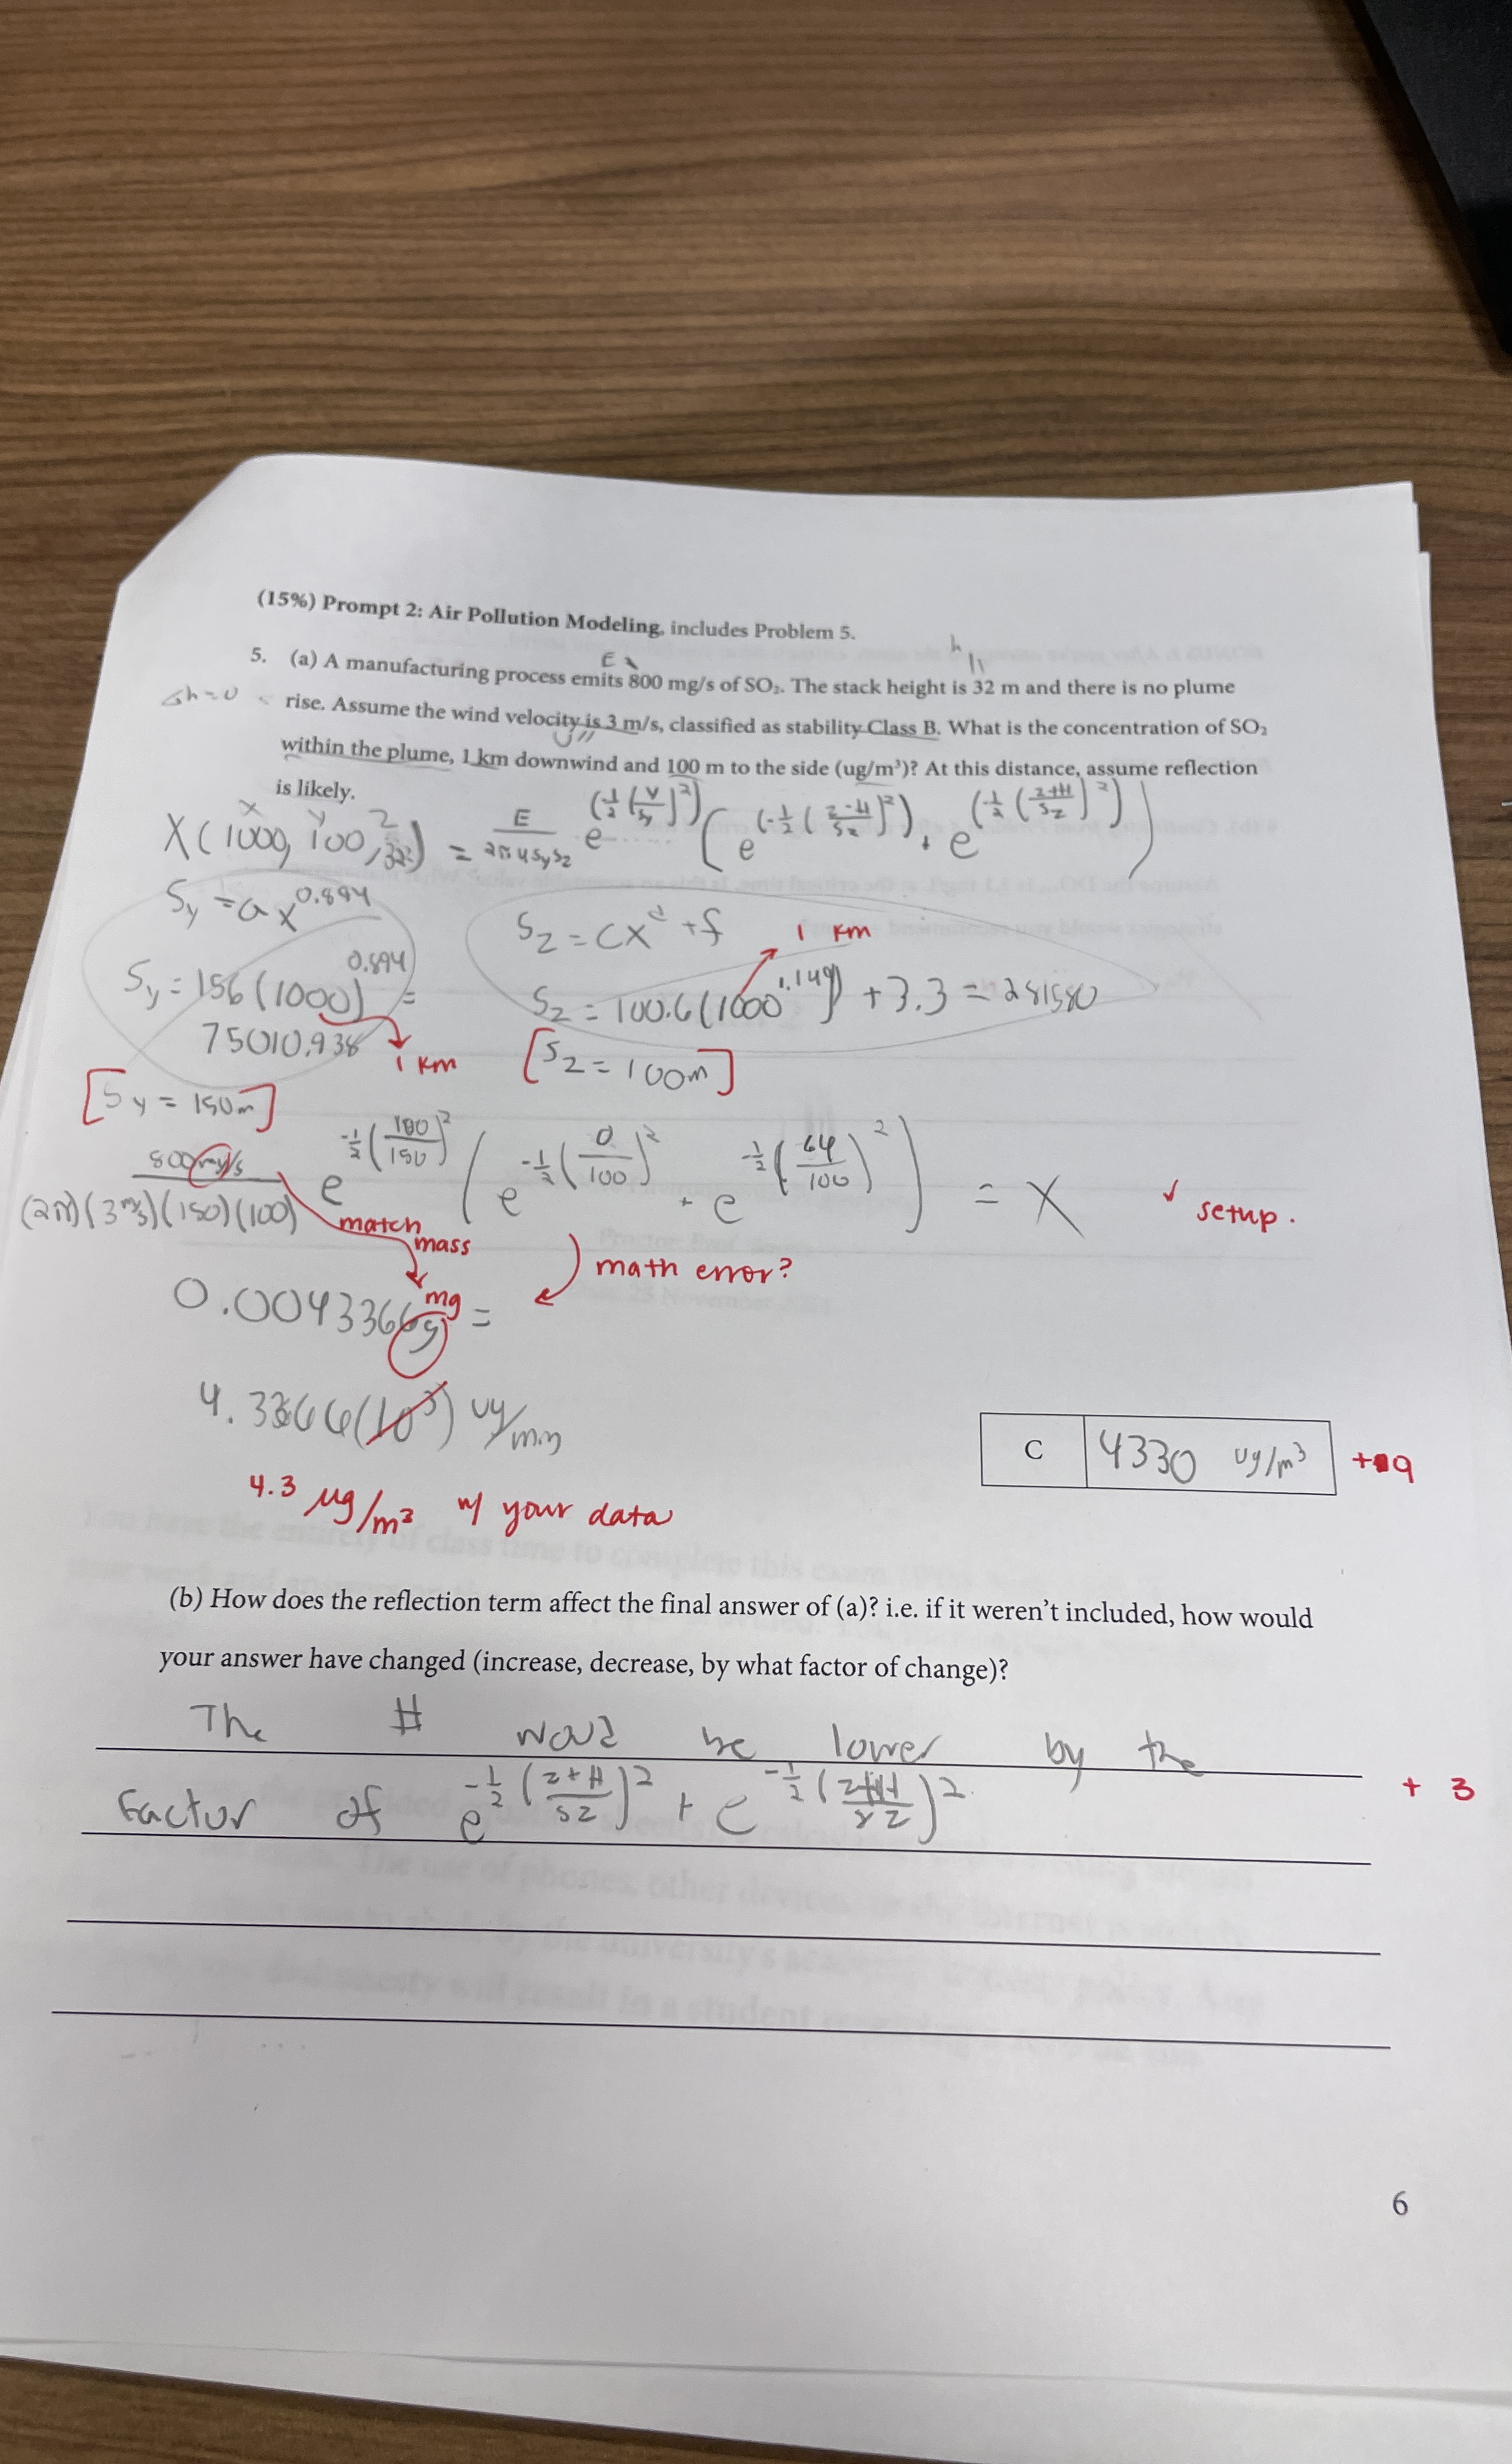 (15%) Prompt 2: Air Pollution Modeling, includes Problem 5.
E
h
11
5. (a) A manufacturing process emits 800 mg/s of SO₂. The stack height is 32 m and there is no plume
Δh=0
rise. Assume the wind velocity is 3 m/s, classified as stability Class B. What is the concentration of SO₂
U
within the plume, 1 km downwind and 100 m to the side (ug/m³)? At this distance, assume reflection
is likely.
x y z
X(1000, 100, 32) = E/(2πu s_y s_z) e^(-1/2 (y/s_y)²) (e^(-1/2 (z-H/s_z)²) + e^(-1/2 (z+H/s_z)²))
S_y = ax^0.894
S_z = cx^d + f
1 km
S_y = 156(1000)^0.894 =
75010.938
1 km
S_z = 100.6(1000^1.149) + 3.3 = 281580
[S_z = 100m]
[S_y = 150m]
800mg/s / (2π)(3 m/s)(150)(100) e^-1/2(100/150)² (e^-1/2(0/100)² + e^-1/2(64/100)²) = X
✓ setup.
match
mass
math error?
mg
0.0043366g =
4.3366(10³) ug/m³
C 4330 ug/m³
+9
4.3 μg/m³ w/ your data
(b) How does the reflection term affect the final answer of (a)? i.e. if it weren't included, how would
your answer have changed (increase, decrease, by what factor of change)?
The # would be lower by the
Factor of e^-1/2(z+H/sz)² + e^-1/2(z+H/sz)²
+ 3
6